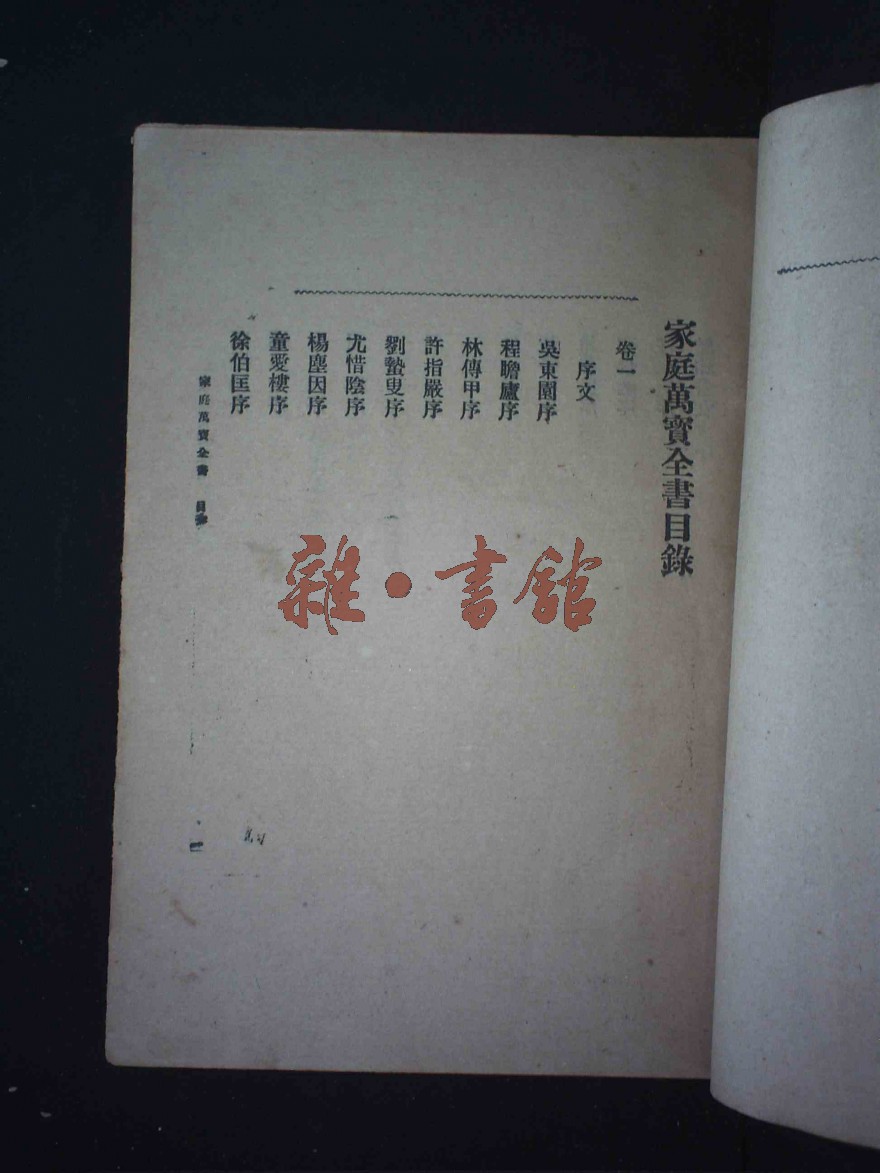 家庭萬寳全書目錄
卷一
序文
吳東園序
程瞻廬序
林傳甲序
許指嚴序
劉蟄叟序
尤惜陰序
楊塵因序
童愛樓序
徐伯匡序
家庭萬寳全書 目錄
一
雜•書館